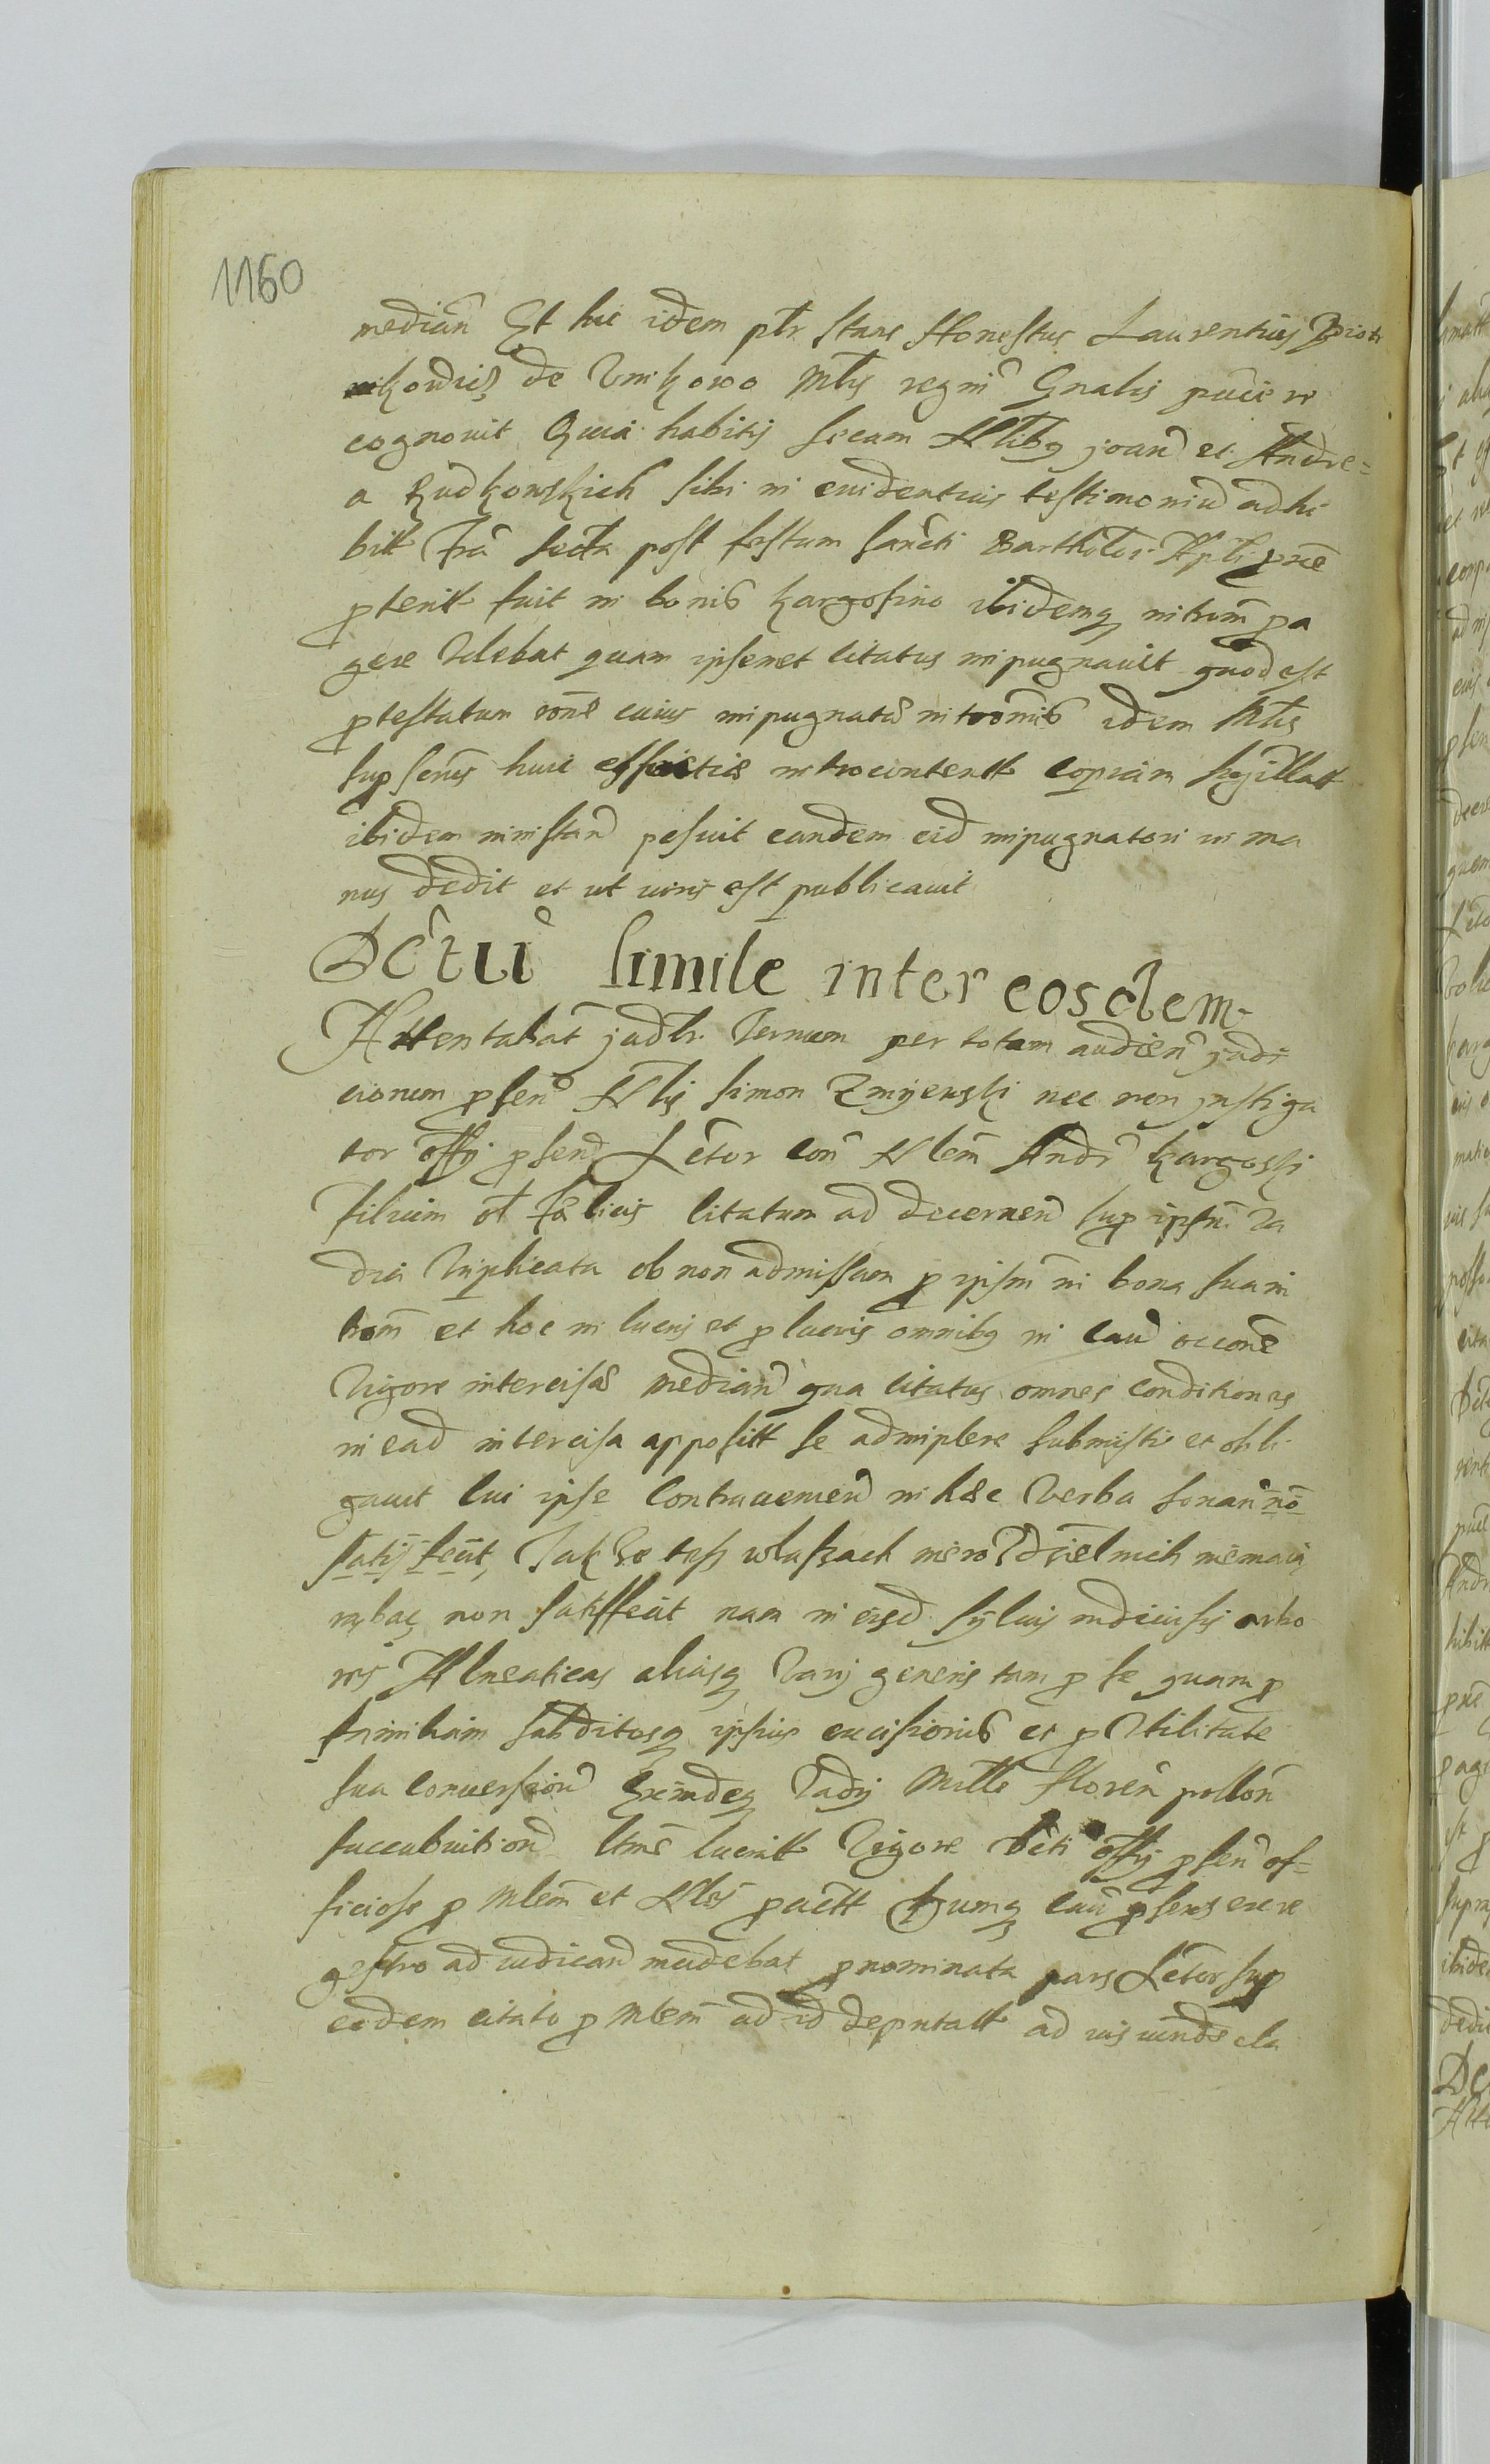 1160
mediań Et hic idem ptr stans Honestus Laurentius Piotr
kowicz de Unikowo Mtis regni Gnalis puće re
cognovit Quia habitis secum Nlibq joań et Andre=
a Rudkowskich sibi in evidentius testimoniū adhi
bitt Fra sexta post festum sancti Bartholoei Apli pxe
pteritt fuit in bonis Kargosino ibidemq introm pa
gere volebat quam ipsemet citatus impugnavit quod est
ptestatum rone cuius impugnatae intronis idem Mtis
sup sens huic introcontentt copiam sigillatt
ibidem ministrań posuit eandem eid impugnatori in ma
nus dedit et ut iuris est publicavit
Dctu simile inter eosdem.
Attentabat judtr Ternum per totam audień judi
ciorum psen Nlis Simon Zmijewski nec non jnstiga
tor offij psen Actor coń Nlem Andr Kargoski
filium ol Felicis citatum ad decerneń sup ipsm va
dia triplicata ob non admissam p ipsm in bona sua in
trom et hoc in lucris et plucris omnibq in cau occone
vigore intercisae mediań qua citatus omnes conditiones
in ead intercisa appositt se adimplere submisit et obli
gavit cui ipse contravenień in haec verba sonań no
satis fecit, Jak ze tesz w lassach nierozdzielnich niemaią
rąbac non satisfecit nam in eisd sylvis indivisis arbo
res Alneaticas aliasq varij generis tam p se quam p
familiam subditosq ipsius excisionis et p utilitate
sua conversioń Exindeq vadij Mille floreń pollon
succubuitioń lrme lucritt vigore dcti offij psen of=
ficiose p Mlem et Nles pactt Dumq cau psens ex re
gestro ad iudicań incidebat pnominata pars Actor sup
eodem citato p Mlem ad id deputatt ad iusiuńde cla